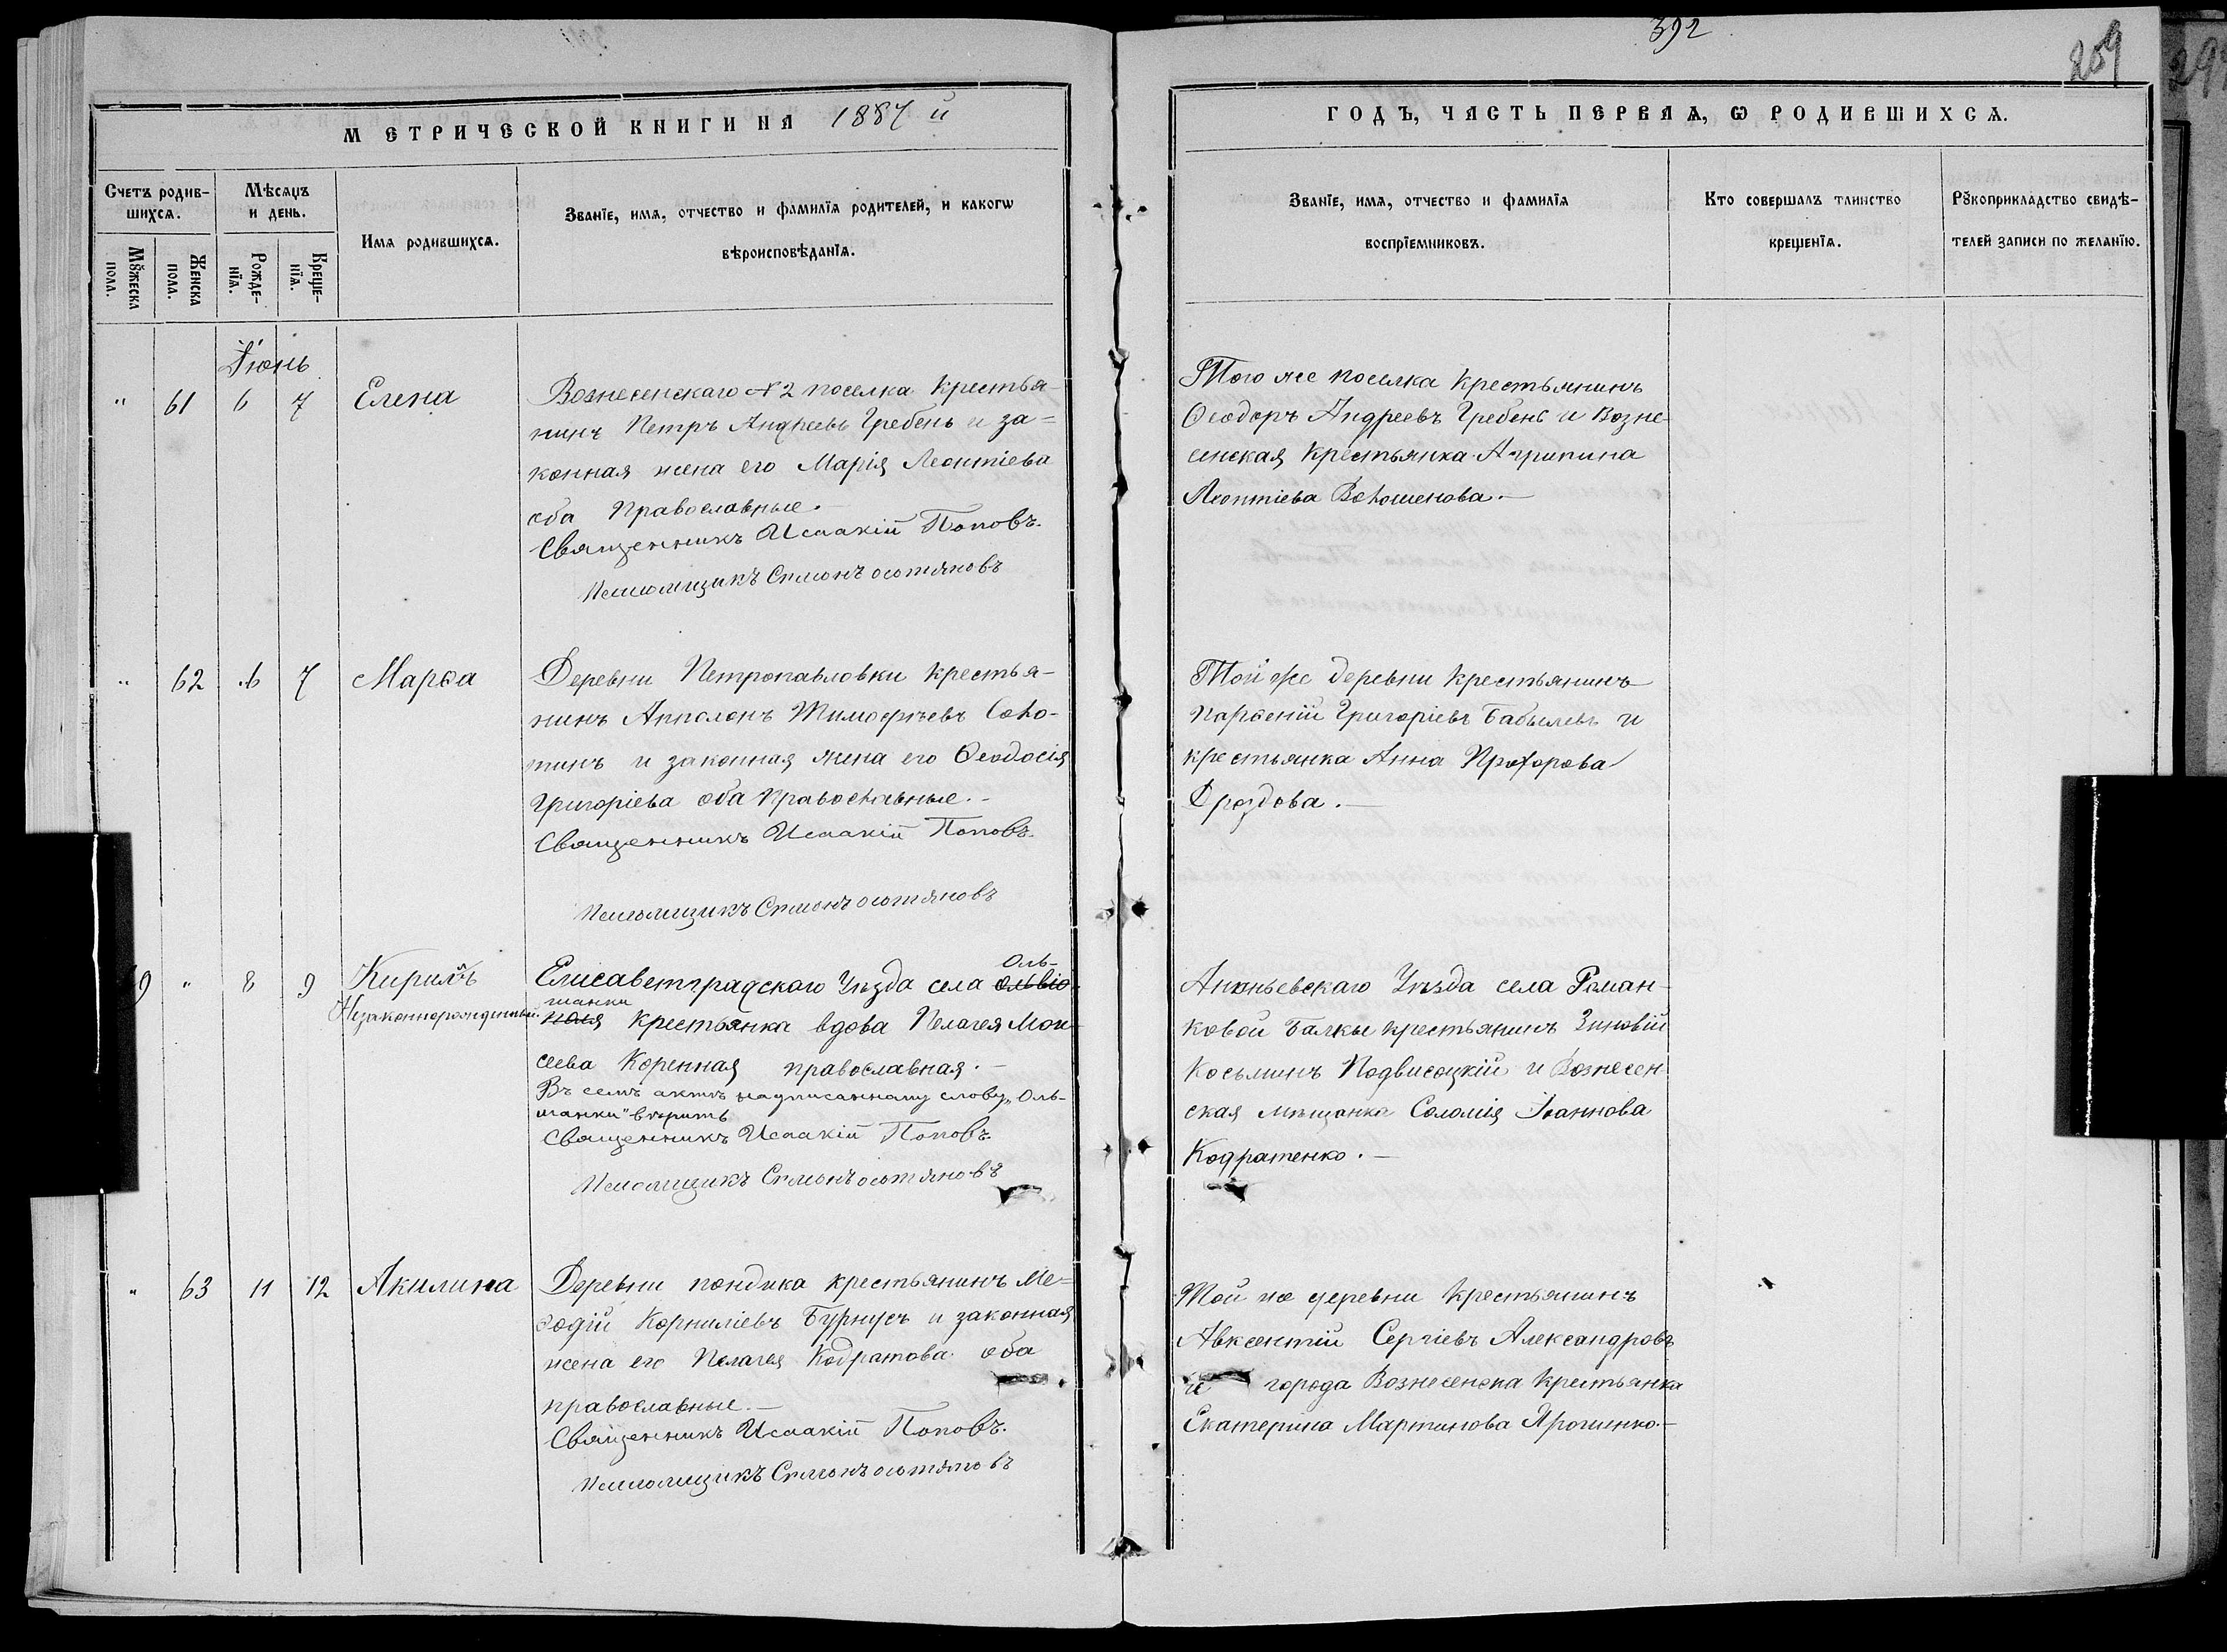 392
259
МЕТРИЧЕСКОЙ КНИГИ НА 1887 й
ГОДЪ, ЧАСТЬ ПЕРВАЯ, Ѡ РОДИВШИХСѦ.
Счетъ родив-
шихсѧ.
Мѣсѧцъ
и день.
Имѧ родившихсѧ.
Званїе, имѧ, отчество и фамилїѧ родителей, и какогѡ
вѣроисповѣданїѧ.
Мꙋжеска
пола.
Женска
пола.
Рожде-
нїѧ.
Креще-
нїѧ.
Званїе, имѧ, отчество и фамилїѧ
воспрїемниковъ.
Кто совершалъ таинство
крещенїѧ.
Рꙋкоприкладство свидѣ-
телей записи по желанїю.
Іюнь
" 61 6 7 Елена
Вознесенскаго №2 поселка крестья-
нинъ Петръ Андреевъ Гребень и за=
конная жена его Марія Леонтіева
оба Православные.
Священникъ Исаакій Поповъ.
Псаломщикъ Симонъ
Того же поселка крестьянинъ
Ѳеодоръ Андреевъ Гребень и Возне-
сенская крестьянка Агрипина
Леонтіева Волошенова.—
" 62 6 7 Марѳа
Деревни Петропавловки крестья-
нинъ Апполонъ Тимофѣевъ Соло-
тинъ и законная жена его Ѳеодосія
Григоріева оба Православные.-
Священникъ Исаакій Поповъ.
Псаломщикъ Симонъ
Той же деревни крестьянинъ
Парѳеній Григоріевъ Бабылевъ и
крестьянка Анна Прохорова
Дроздова.—
9 " 8 9 Кириллъ
Незаконнорожденный.
Оль-
Елисаветградскаго Уѣзда села
шанки
крестьянка вдова Пелагея Мои-
сеева Коренная православная.—
Въ семъ актѣ надписанному слову „Оль-
шанки" вѣрить
Священникъ Исаакій Поповъ.
Псаломщикъ Симонъ
Ананьевскаго Уѣзда села Роман-
ковой Балки крестьянинъ Зиновій
Косьминъ Подвисоцкій и Вознесен
ская мѣщанка Соломія Іоаннова
Кодратенко.—
" 63 11 12 Акилина
Деревни пондика крестьянинъ Ме=
ѳодій Корниліевъ Бурнусъ и законная
жена его Пелагея Кодратова оба
православные.—
Священникъ Исаакій Поповъ.
Псаломщикъ Симонъ
Той же деревни крестьянинъ
Авксентій Сергіевъ Александровъ
и города Вознесенска крестьянка
Екатерина Мартинова Ярошенко.—